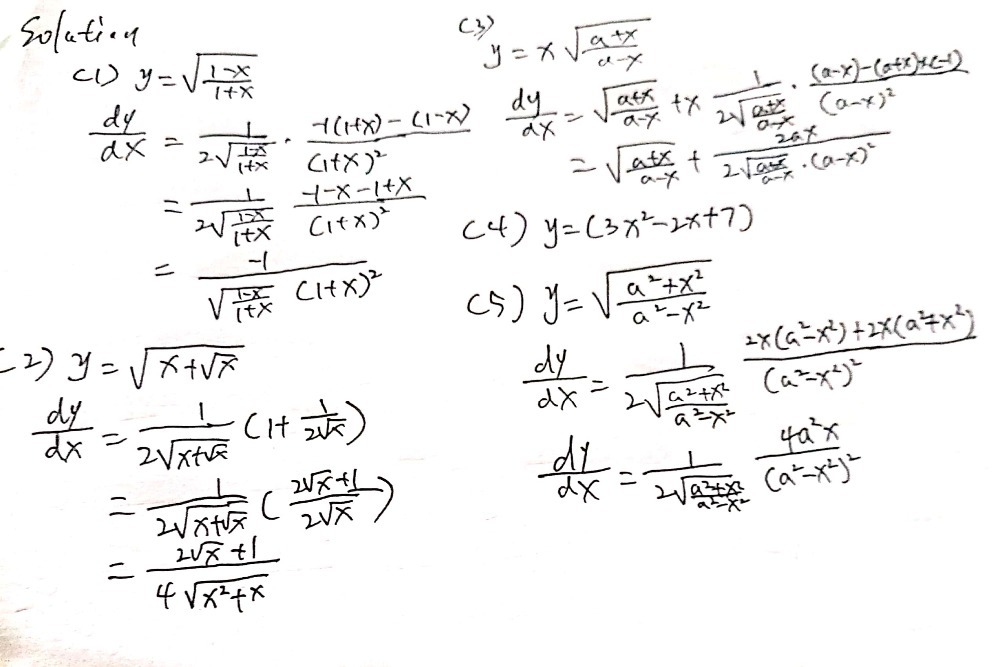 Solution
(1) y = √((1-x)/(1+x))
dy/dx = 1/(2√((1-x)/(1+x))) · (-1(1+x) - (1-x))/(1+x)²
= 1/(2√((1-x)/(1+x))) (-1-x-1+x)/(1+x)²
= -1/(√((1-x)/(1+x)) (1+x)²)
(2) y = √(x+√x)
dy/dx = 1/(2√(x+√x)) (1 + 1/(2√x))
= 1/(2√(x+√x)) ((2√x+1)/(2√x))
= (2√x+1)/(4√(x²+x))
(3)
y = x √((a+x)/(a-x))
dy/dx = √((a+x)/(a-x)) + x 1/(2√((a+x)/(a-x))) · ((a-x)-(a+x)×(-1))/(a-x)²
= √((a+x)/(a-x)) + 2ax/(2√((a+x)/(a-x)) · (a-x)²)
(4) y = (3x²-2x+7)
(5) y = √((a²+x²)/(a²-x²))
dy/dx = 1/(2√((a²+x²)/(a²-x²))) (2x(a²-x²)+2x(a²+x²))/(a²-x²)²
dy/dx = 1/(2√((a²+x²)/(a²-x²))) 4a²x/(a²-x²)²